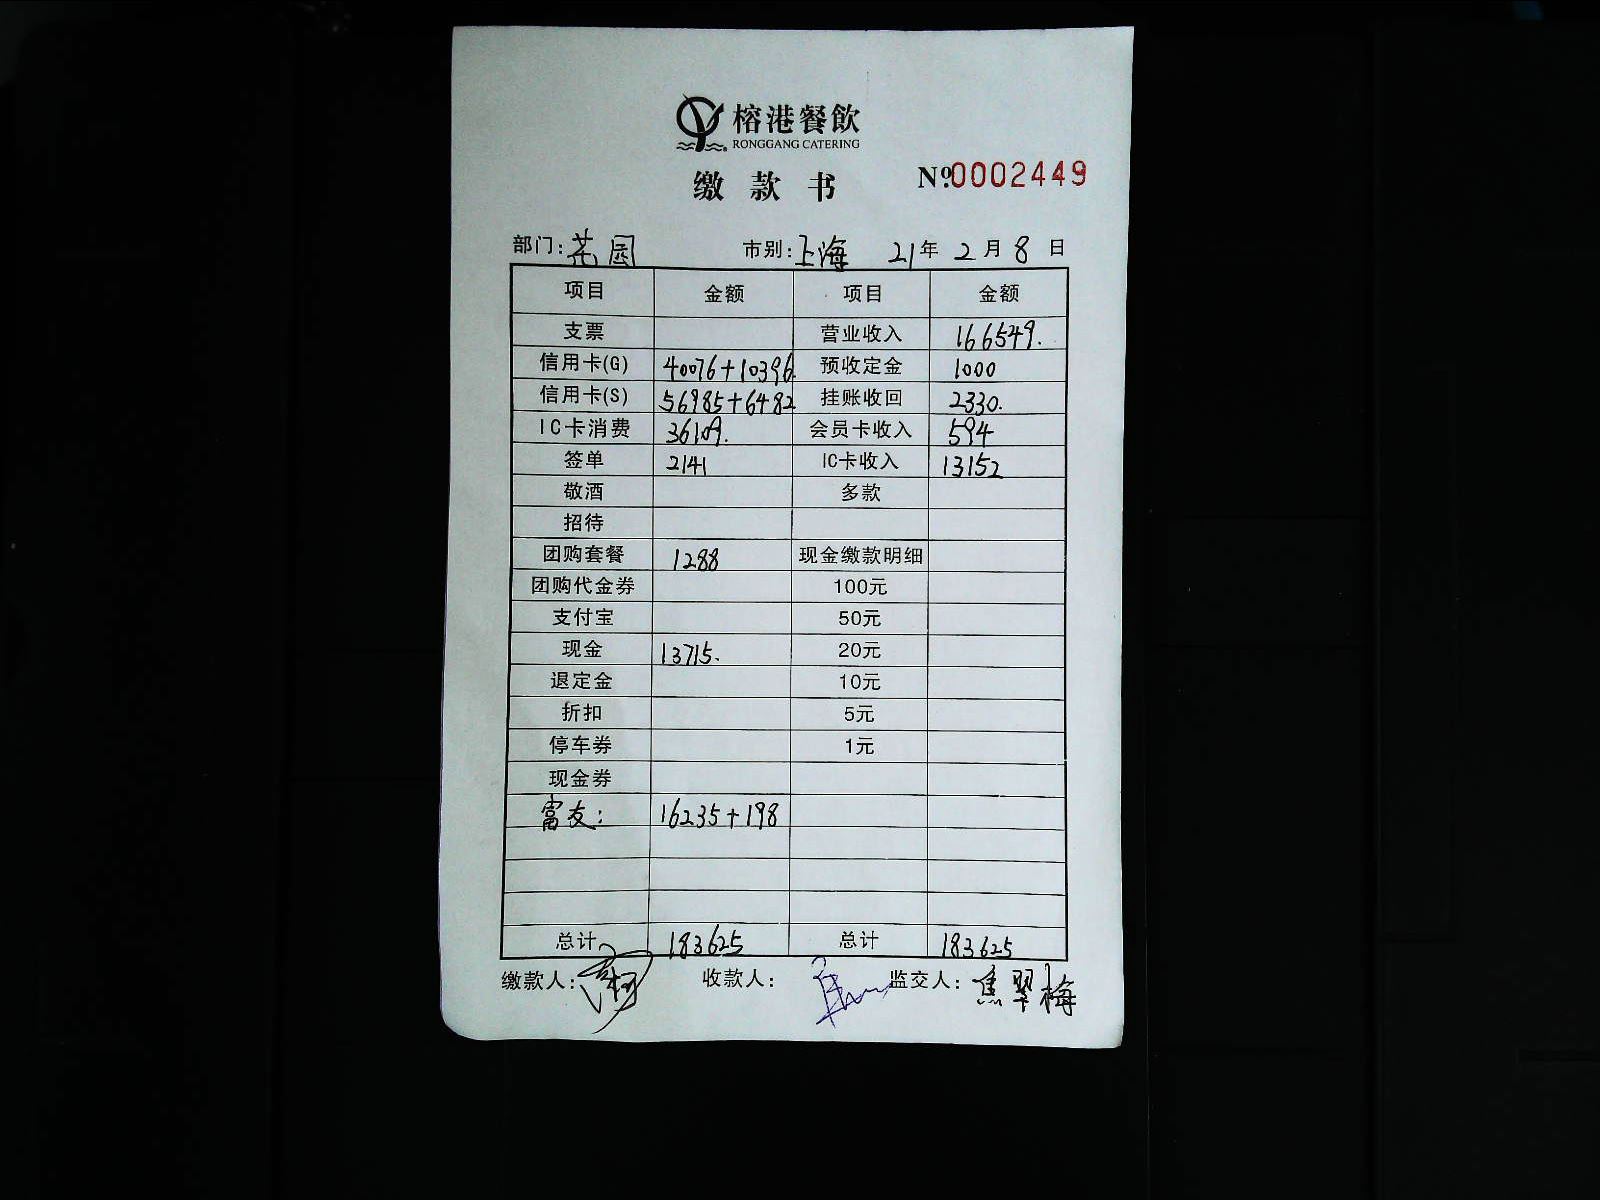 榕港餐飲
RONGGANG CATERING
缴款书 №0002449
部门: 花园 市别: 上海 21年 2月 8日
项目 金额 项目 金额
支票 营业收入 166549.
信用卡(G) 40076+10396. 预收定金 1000
信用卡(S) 56985+6482 挂账收回 2330.
IC卡消费 36109. 会员卡收入 594
签单 2141 IC卡收入 13152
敬酒 多款
招待
团购套餐 1288 现金缴款明细
团购代金券 100元
支付宝 50元
现金 13715. 20元
退定金 10元
折扣 5元
停车券 1元
现金券
富友: 16235+198
总计 183625 总计 183625
缴款人: 收款人: 监交人: 焦翠梅